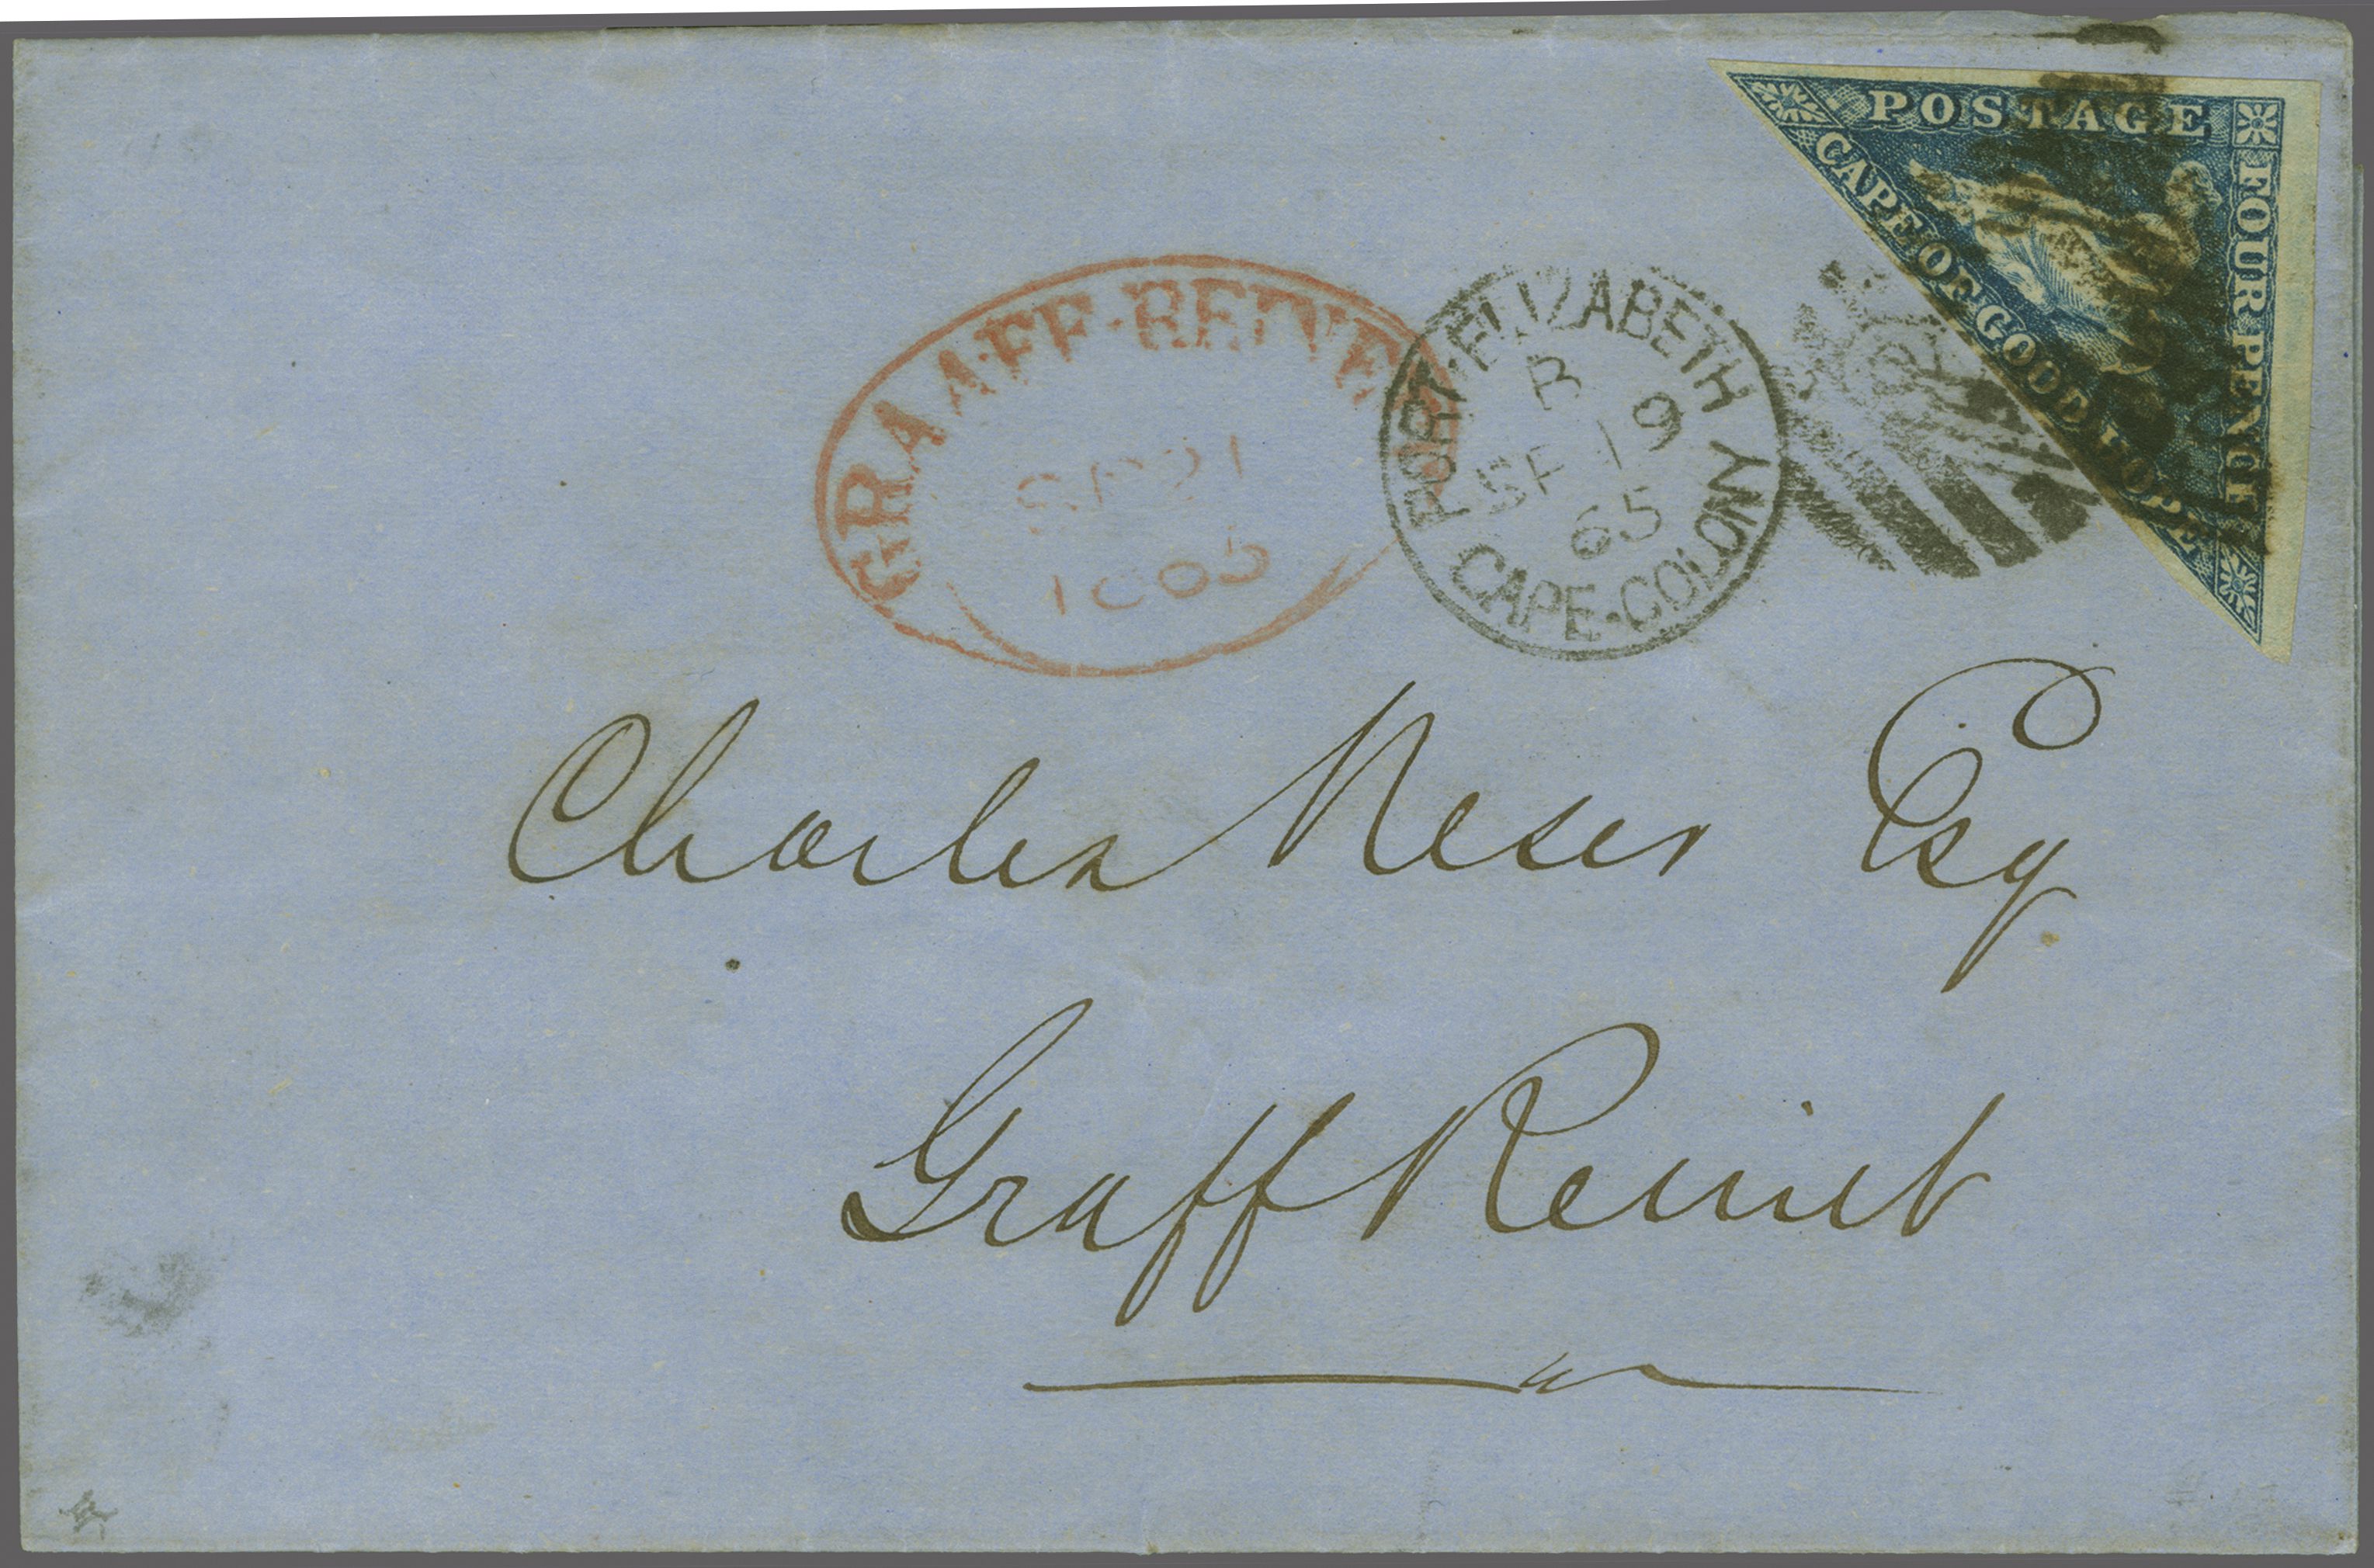 POSTAGE
FOUR PENCE
CAPE OF GOOD HOPE
GRAAFF-REINE
SP 21
1865
PORT·ELIZABETH
B
SE 19
65
CAPE·COLONY
Charles Neser Esq
Graff Reinet